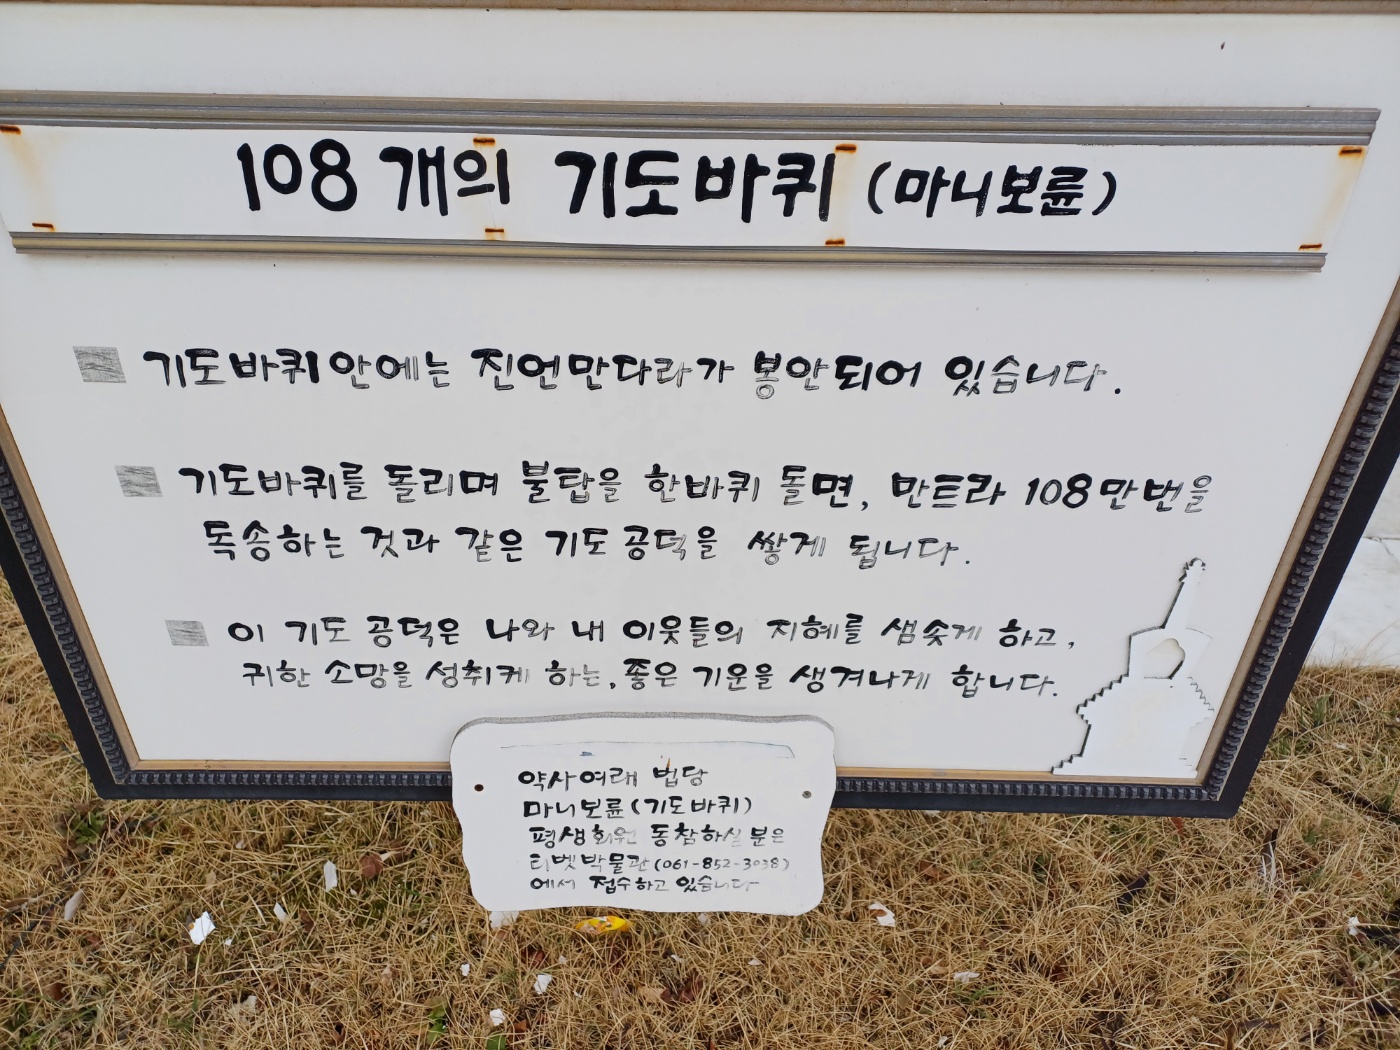 108개의 기도바퀴 (마니보륜)
기도바퀴안에는 진언만다라가 봉안되어 있습니다.
기도바퀴를 돌리며 불탑을 한바퀴 돌면, 만트라 108만번을
독송하는 것과 같은 기도공덕을 쌓게 됩니다.
이 기도 공덕은 나와 내 이웃들의 지혜를 샘솟게 하고,
귀한 소망을 성취케 하는, 좋은 기운을 생겨나게 합니다.
약사여래 법당
마니보륜(기도바퀴)
평생회원 동참하실분은
티벳박물관(061-852-3038)
에서 접수하고 있습니다